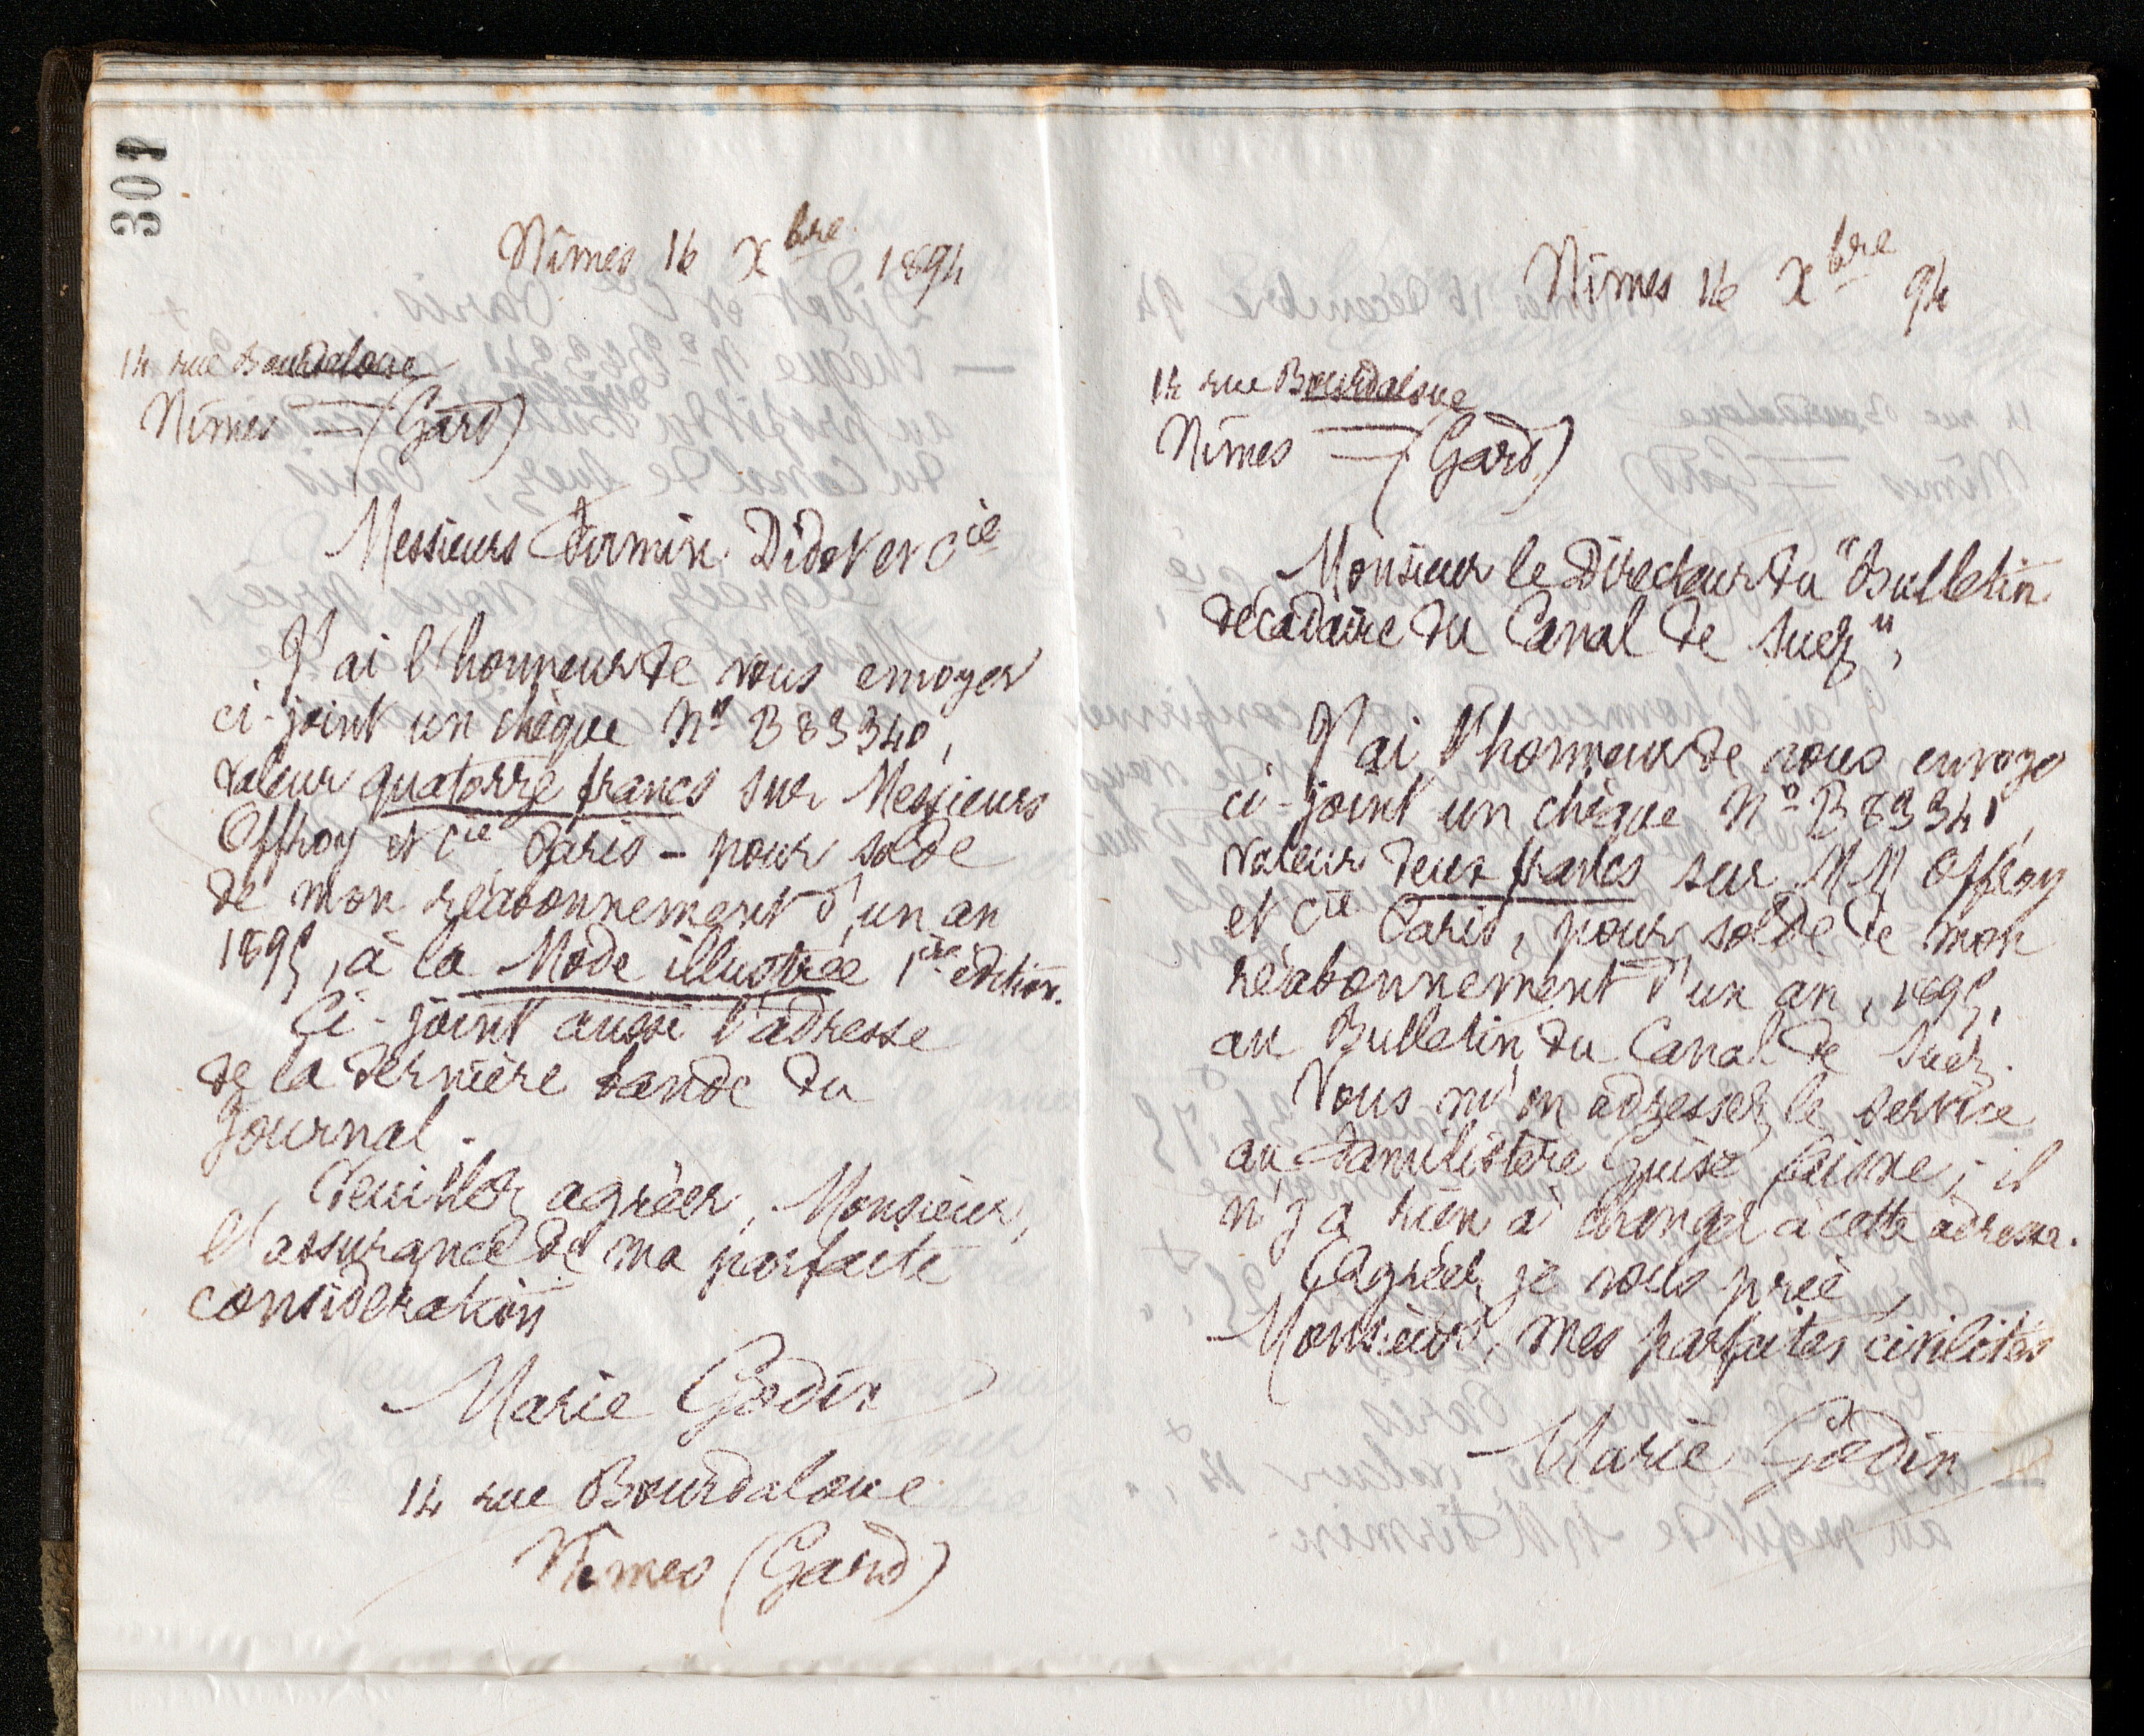 301
Nîmes 16 Xbre 1894
14 rue Bourdaloue
Nîmes = (Gard)
Messieurs Firmin Didot et Cie
J'ai l'honneur de vous envoyer
ci-joint un chèque No B 83340,
valeur quatorze francs sur Messieurs
Offroy et Cie Paris - pour solde
de mon réabonnement d'un an
1895, à la Mode illustrée 1ère édition.
Ci-joint aussi l'adresse
de la dernière bande du
Journal.
Veuillez agréer, Monsieur,
l'assurance de ma parfaite
considération
Marie Godin
14 rue Bourdaloue
Nîmes (Gard)
Nîmes 16 Xbre 94
14 rue Bourdaloue
Nîmes = (Gard)
Monsieur le Directeur du "Bulletin
décadaire du Canal de Suez",
J'ai l'honneur de vous envoyer
ci-joint un chèque No B 83341,
valeur deux francs sur MM Offroy
et Cie Paris, pour solde de mon
réabonnement d'un an, 1895,
au Bulletin du Canal de Suez.
Vous m'en adressez le service
au Familistère Guise Aisne; il
n'y a rien à changer à cette adresse.
Agréez je vous prie,
Monsieur, mes parfaites civilités
Marie Godin